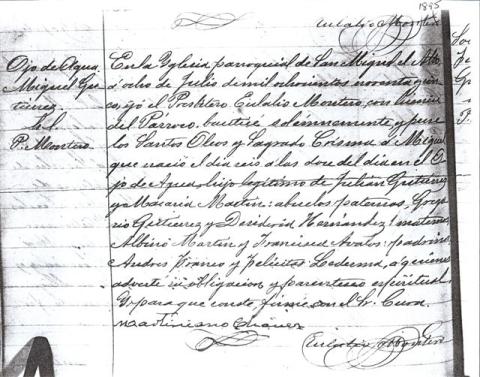 1895
Eulalio Montero
Ojo de Agua.
Miguel Gu-
tiérrez.
h. l.
P. Montero.
En la Yglesia parroquial de San Miguel el Alto
á ocho de Julio de mil ochocientos noventa y cin-
co, yo el Presbítero Eulalio Montero, con licencia
del Párroco, bauticé solemnemente y puse
los Santos Oleos y Sagrado Crisma á Miguel
que nació el dia seis á las doce del dia en el O-
jo de Agua, hijo legítimo de Julián Gutiérrez
y Macaria Martin: abuelos paternos, Grego-
rio Gutierrez y Desideria Hernández: maternos
Albino Martin y Francisca Avalos: padrinos,
Andres Franco y Felicitas Ledesma, á quienes
advertí su obligacion y parentesco espiritual.
Y para que conste, firmé con el Sr. Cura.
Martiniano Chávez
Eulalio Montero